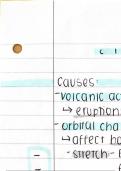 c l
causes:
-volcanic ac
↳ eruption
- orbital cha
↳ affect ho
- stretch - E